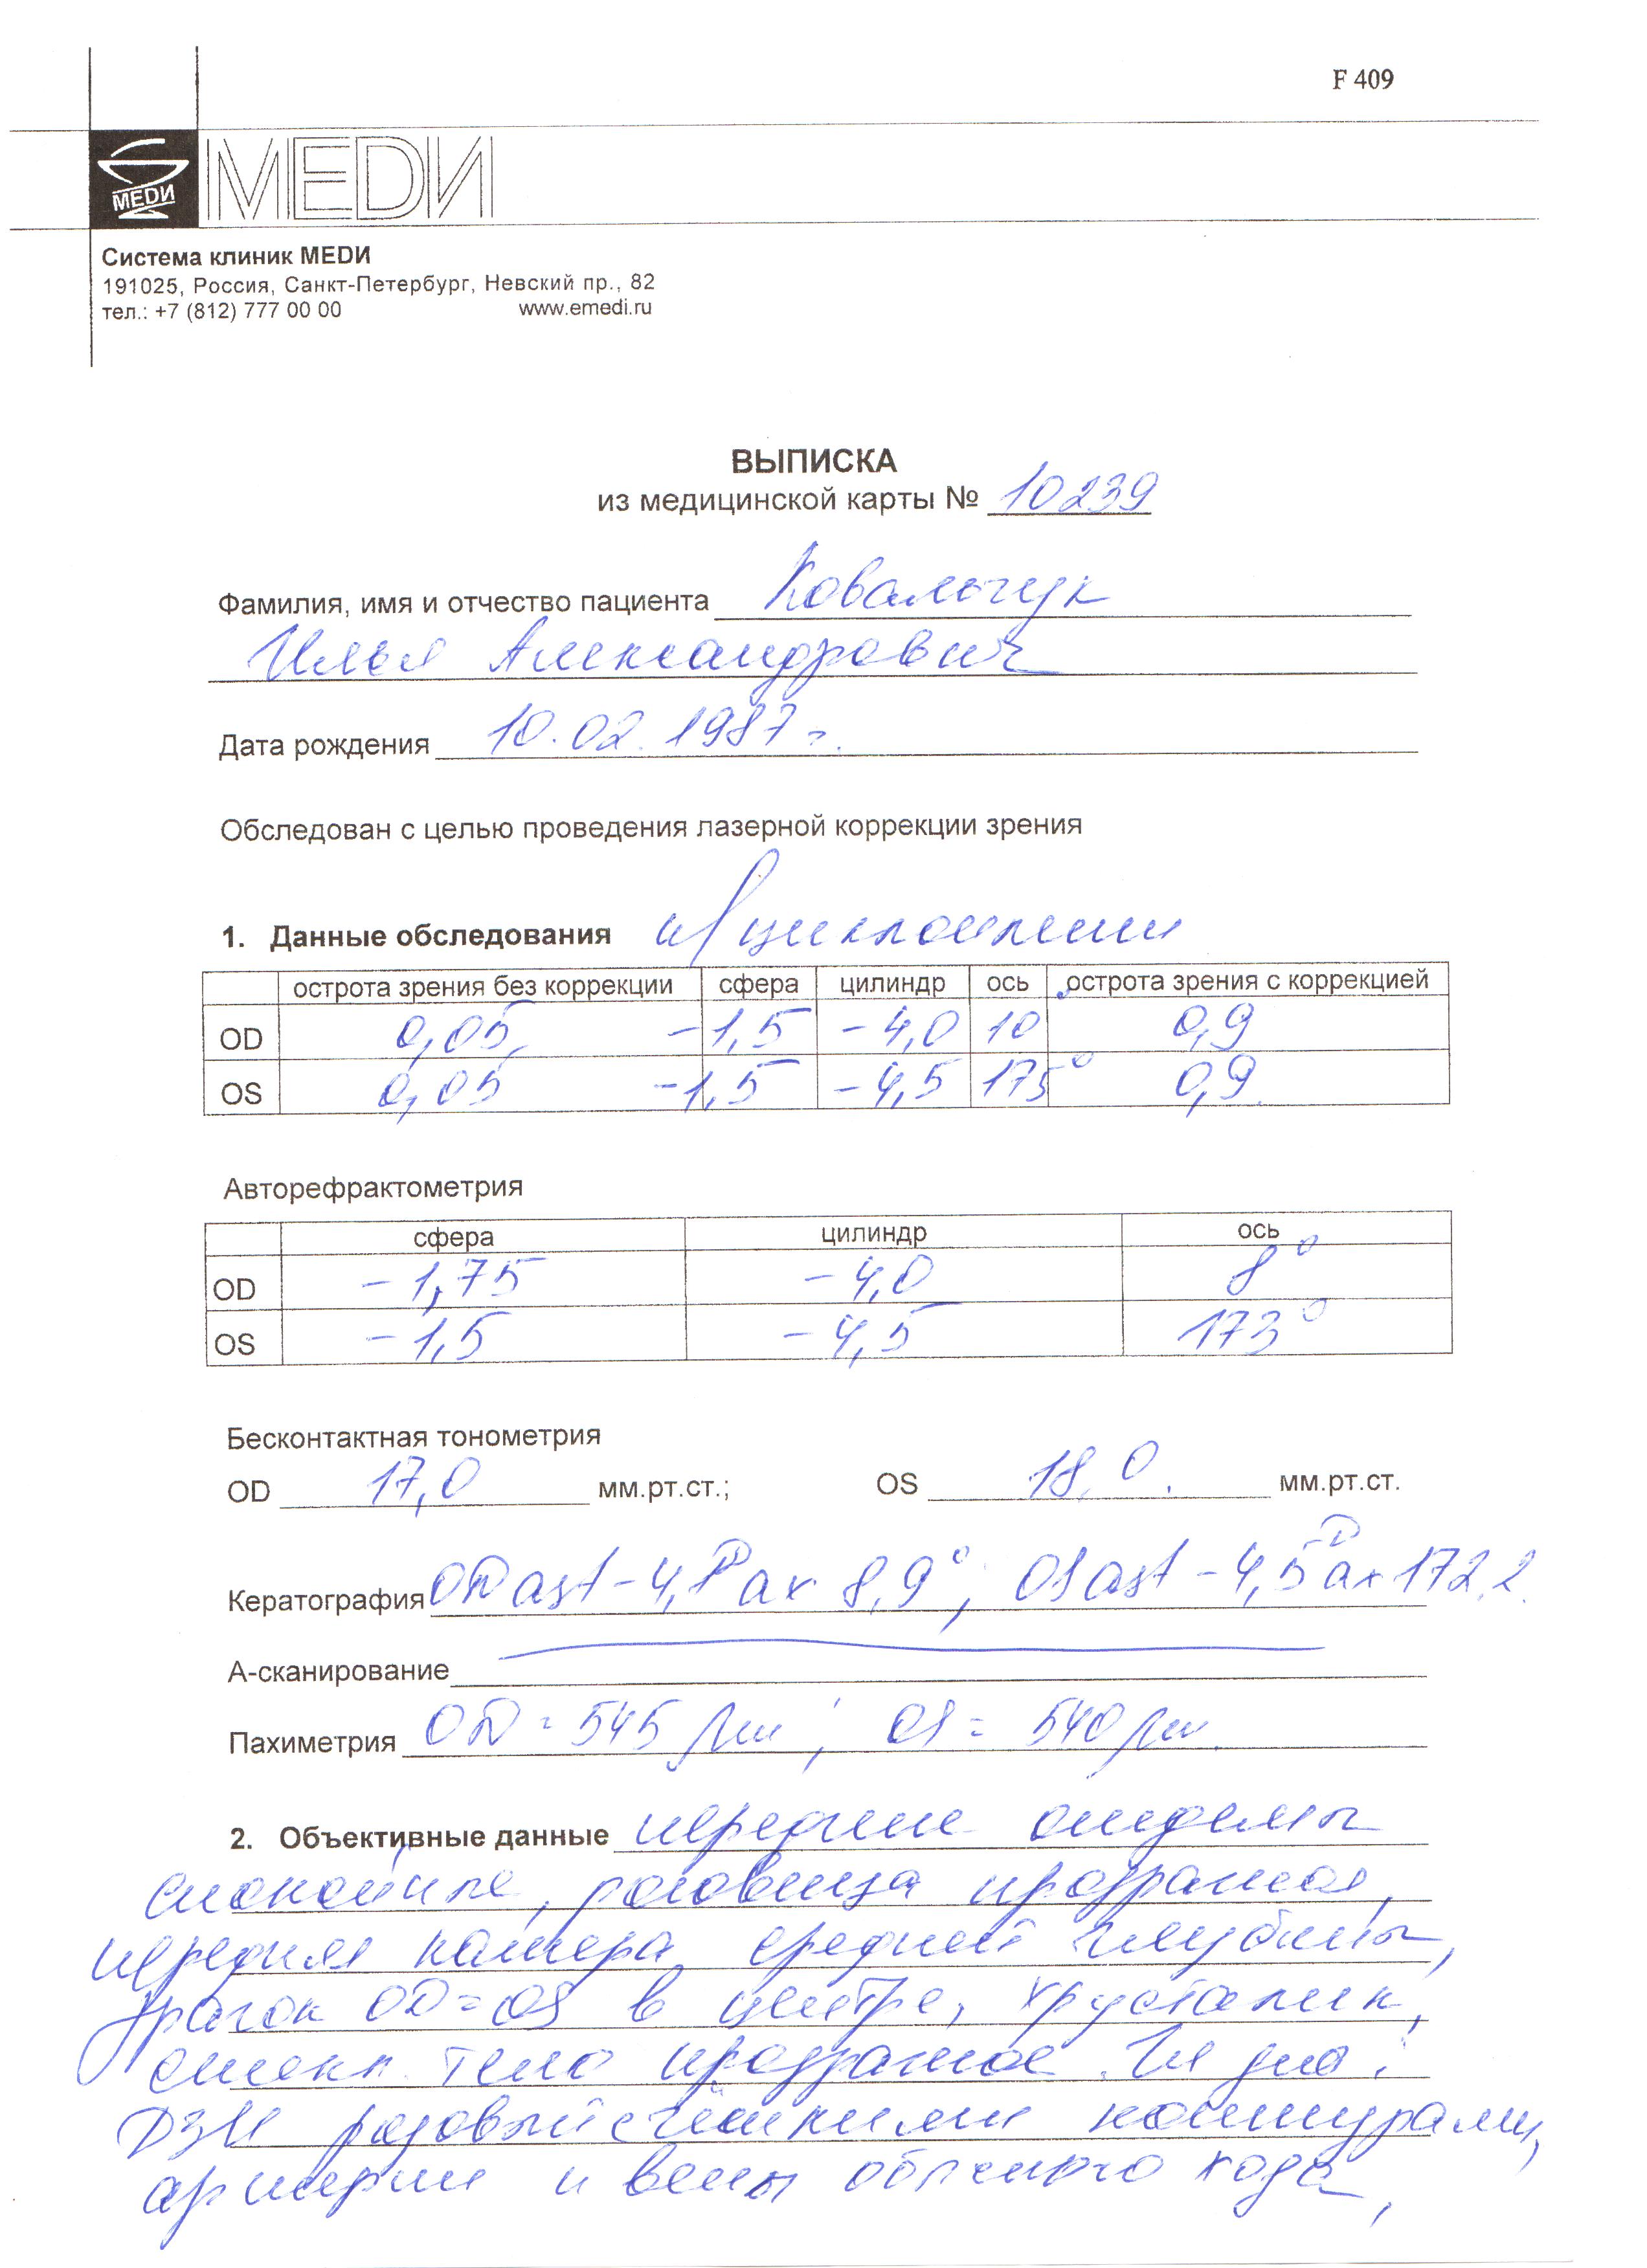 F 409
МЕDИ
МЕDИ
Система клиник МЕDИ
191025, Россия, Санкт-Петербург, Невский пр., 82
тел.: +7 (812) 777 00 00 www.emedi.ru
ВЫПИСКА
из медицинской карты № 10239
Фамилия, имя и отчество пациента Ковальчук
Илья Александрович
Дата рождения 10.02.1987 г.
Обследован с целью проведения лазерной коррекции зрения
1. Данные обследования
острота зрения без коррекции сфера цилиндр ось острота зрения с коррекцией
OD 0,05 -1,5 -4,0 10 0,9
OS 0,05 -1,5 -4,5 175° 0,9
Авторефрактометрия
сфера цилиндр ось
OD -1,75 -4,0 8°
OS -1,5 -4,5 173°
Бесконтактная тонометрия
OD 17,0 мм.рт.ст.; OS 18,0 мм.рт.ст.
Кератография OD ast ax 8,9°; OS ast -4,5D ax 172,2
А-сканирование
Пахиметрия OD = 545 μm; OS = 540 μm.
2. Объективные данные передние отделы
спокойные, роговица прозрачная,
передняя камера средней глубины,
зрачок OD=OS в центре, хрусталик,
стекл. тело прозрачное. Гл дно:
ДЗН розовый с четкими контурами,
артерии и вены обычного хода,